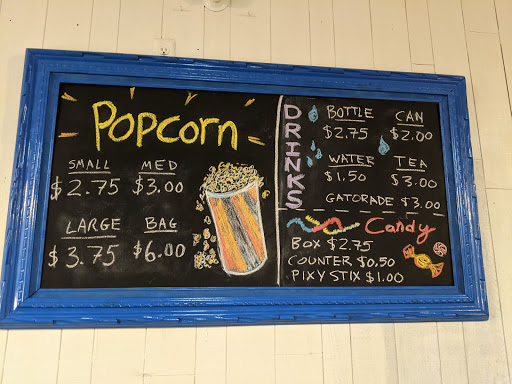 Popcorn
SMALL MED
$2.75 $3.00
LARGE BAG
$3.75 $6.00
DRINKS
BOTTLE CAN
$2.75 $2.00
WATER TEA
$1.50 $3.00
GATORADE $3.00
Candy
BOX $2.75
COUNTER $0.50
PIXY STIX $1.00